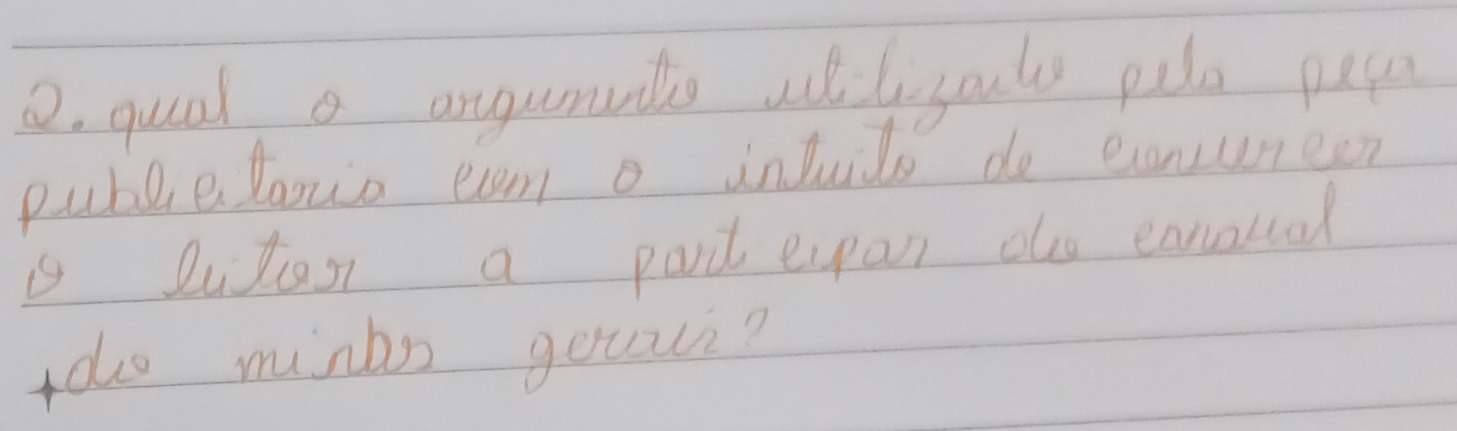 2. qual o argumento utilizado pela peça
publicitario com o intuito de convencer
o leitor a participar do carnaval
do minas gerais?